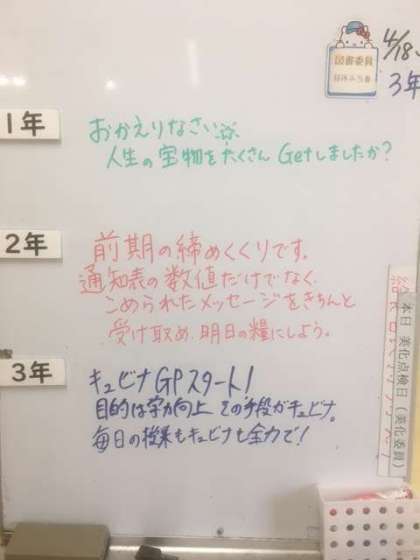 図書委員
昼休み当番
4/18
3年
1年
おかえりなさい
人生の宝物をたくさん Getしましたか?
2年
前期の締めくくりです。
通知表の数値だけでなく、
こめられたメッセージをきちんと
受け取め、明日の糧にしよう。
3年
キュビナGPスタート!
目的は学力向上 その手段がキュビナ。
毎日の授業もキュビナも全力で!
本日 美化点検日(美化委員)